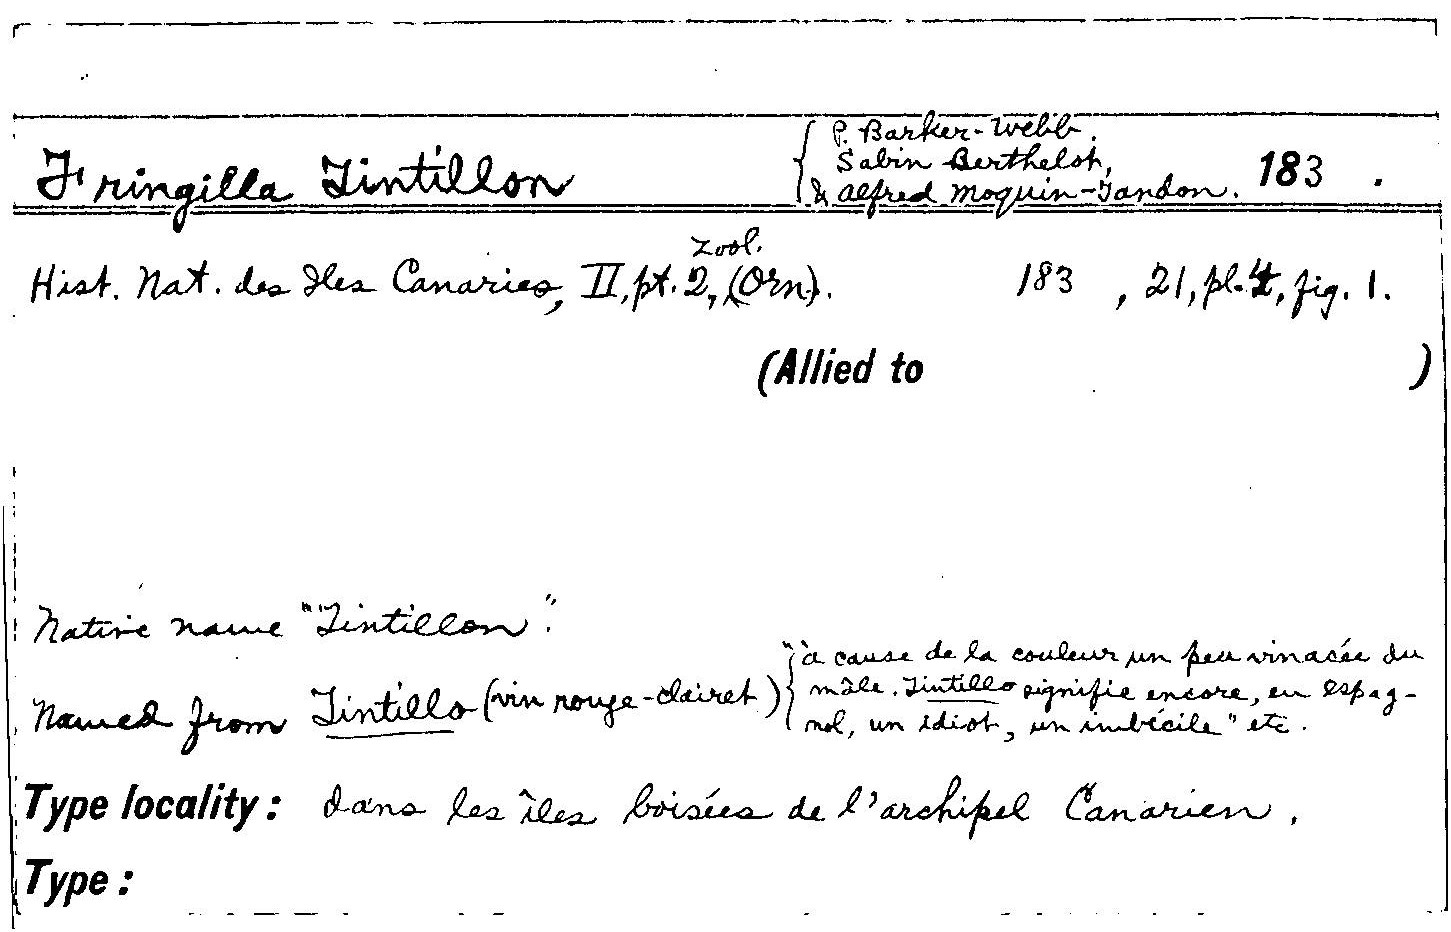 P. Barker-Webb.
Sabin Berthelot,
Fringilla Tintillon & Alfred Moquin-Tandon. 183 .
Zool.
Hist. Nat. des Iles Canaries, II, pt. 2, (Orn.). 183 , 21, pl. 4, fig. 1.
(Allied to )
Native name "Tintillon".
"à cause de la couleur un peu vinacée du
mâle. Tintillo signifie encore, en espag-
Named from Tintillo (vin rouge-clairet)
nol, un idiot, un imbécile" etc.
Type locality: dans les îles boisées de l'archipel Canarien.
Type: